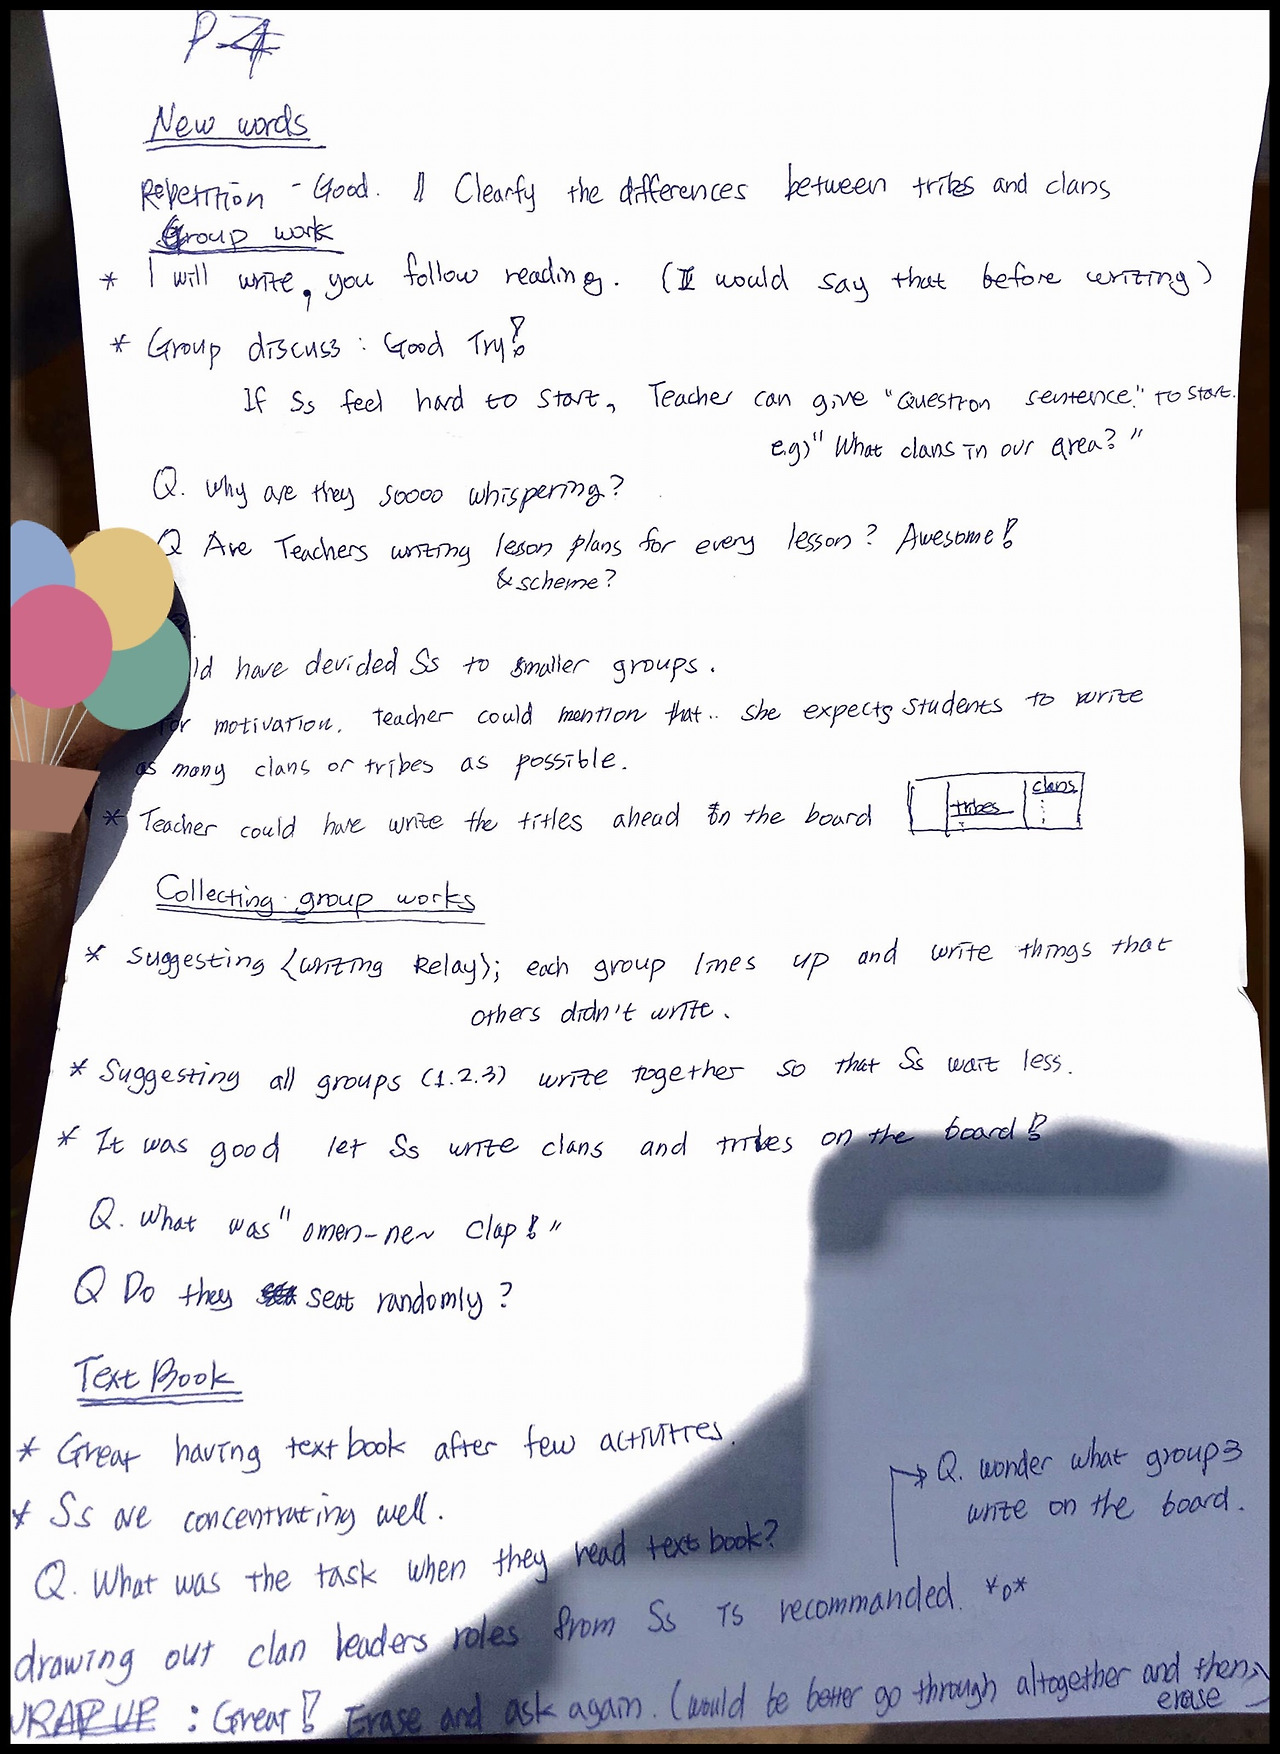 P4
New words
Repetition - Good. Clearfy the differences between tribes and clans
Group work
* I will write, you follow reading. (I would say that before writing)
* Group discuss : Good Try!
If Ss feel hard to start, Teacher can give "Question sentence." to start.
e.g) "What clans in our area?"
Q. Why are they soooo whispering?
Q Are Teachers writing lesson plans for every lesson? Awesome!
& scheme?
have devided Ss to smaller groups.
for motivation. teacher could mention that.. she expects students to write
as many clans or tribes as possible.
* Teacher could have write the titles ahead on the board
tribes
clans
Collecting group works
* Suggesting <writing Relay>; each group lines up and write things that
others didn't write.
* Suggesting all groups (1.2.3) write together so that Ss wait less.
* It was good let Ss write clans and tribes on the board!
Q. What was "omen-ner clap!"
Q Do they seat randomly?
Text Book
* Great having text book after few activities.
* Ss are concentrating well.
Q. What was the task when they read text book?
Q. wonder what group3
write on the board.
drawing out clan leaders roles from Ss is recommanded. *o*
WRAP UP : Great! Erase and ask again. (would be better go through altogether and then
erase)